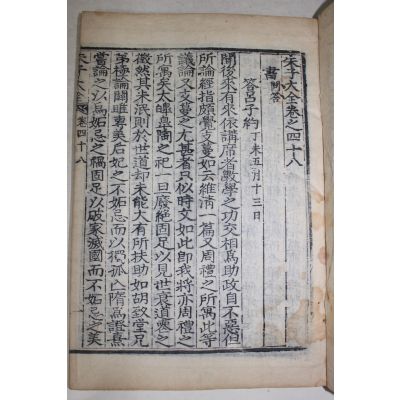 朱子大全卷之四十八
書 問答
答呂子約 丁未五月十三日
聞後來有來依講席者斅學之功交相爲助政自不惡但
所論經指頗覺支蔓如云維清一篇又周禮之所寓此等
議論又支蔓之尤甚者只似時文如此卽我將亦周禮之
所寓矣人僊臯陶之祀一旦廢絶固足以見世衰道喪之
徵然其末派則於世道却未能大有所扶助如胡致堂兄
弟極論關雎專美后妃之不妬忌而以獨孤亡隋爲證熹
嘗論之以爲妬忌之禍固足以破家滅國而不妬忌之美
朱子大全 卷四十八